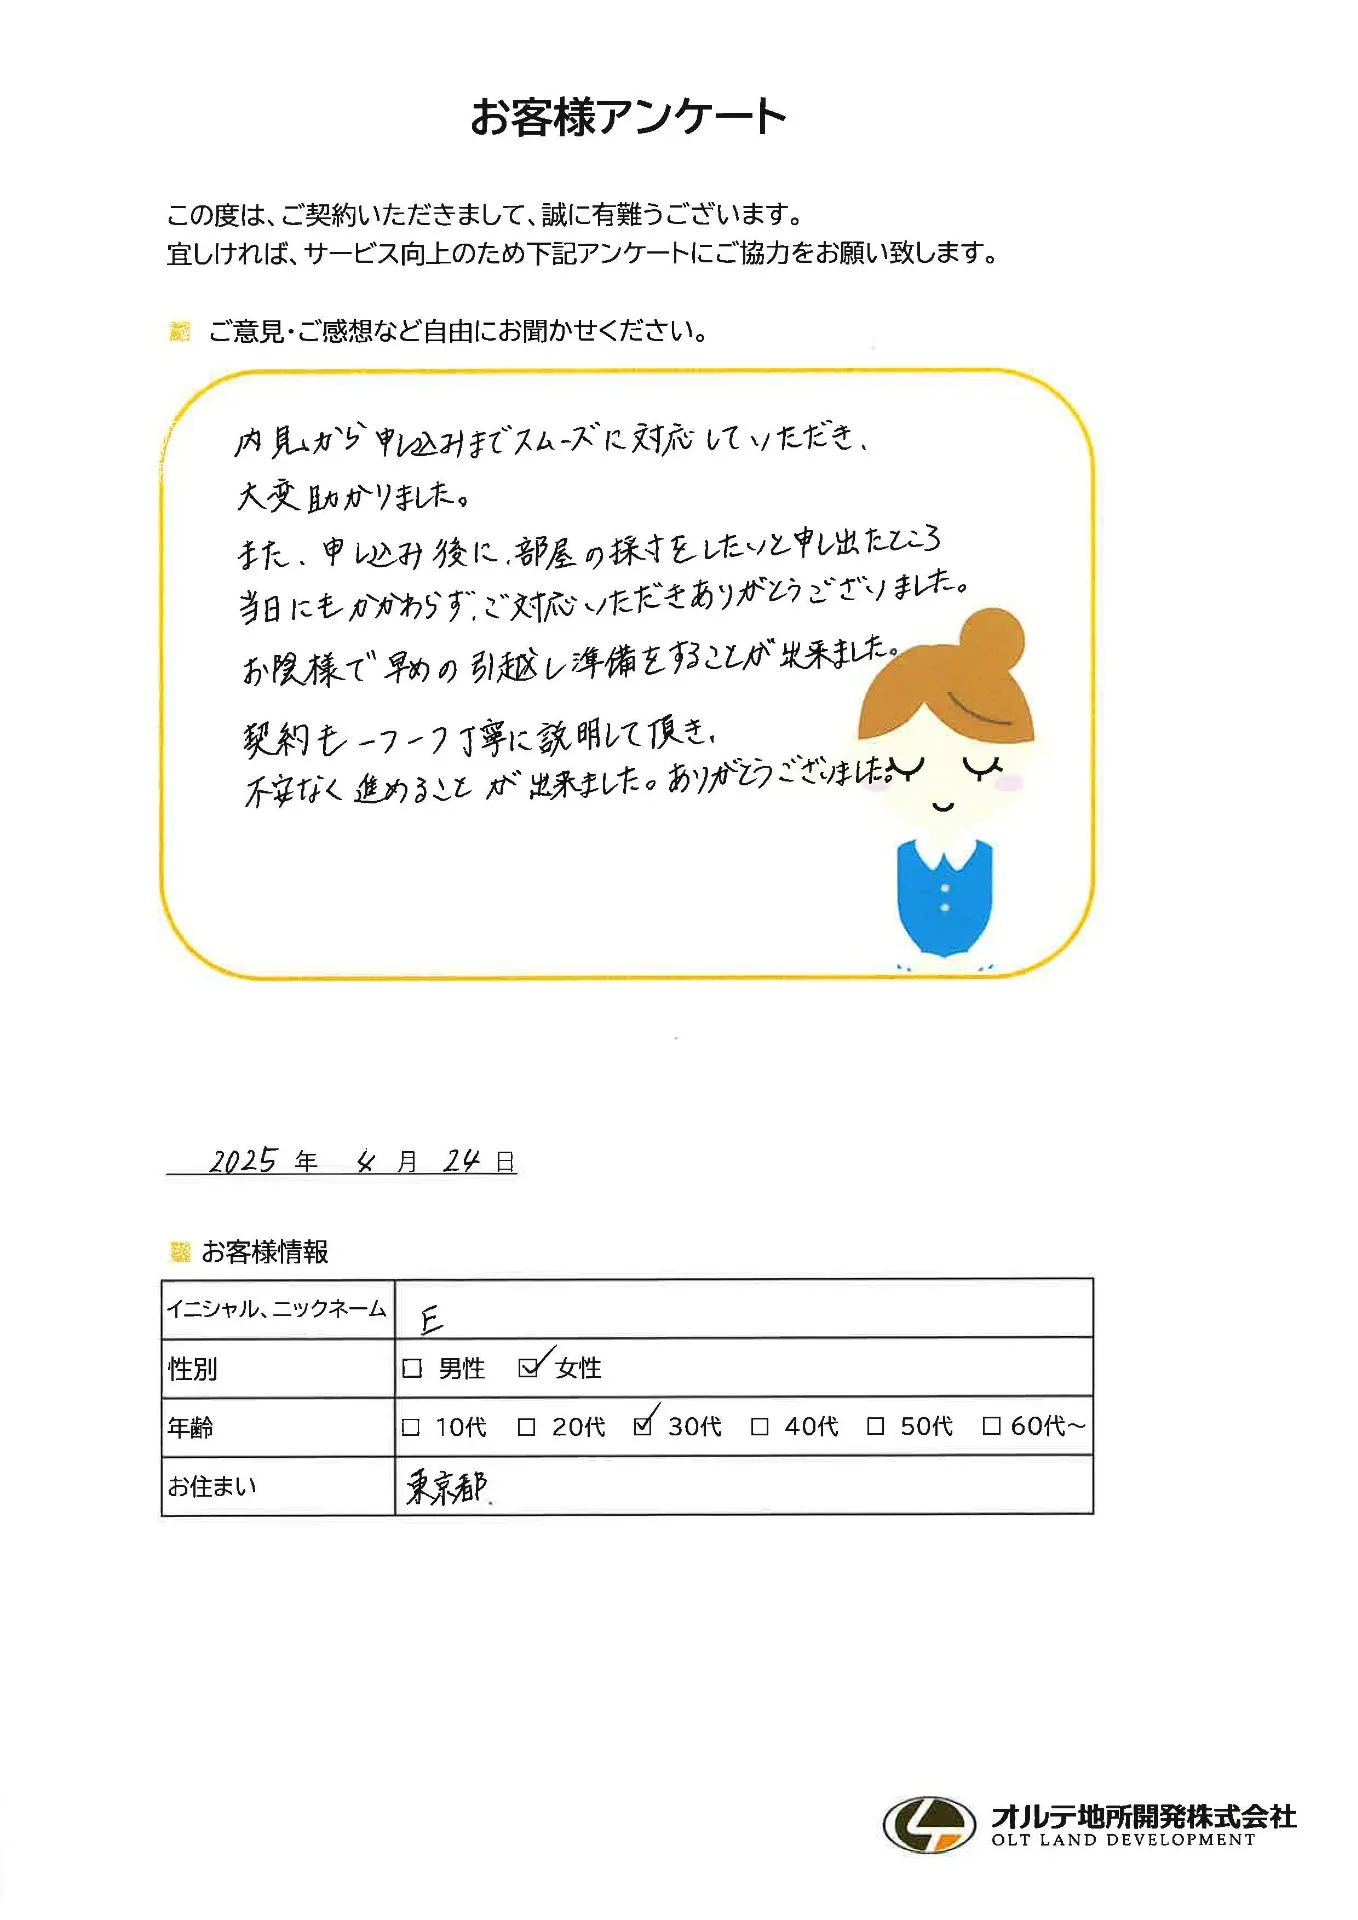 お客様アンケート
この度は、ご契約いただきまして、誠に有難うございます。
宜しければ、サービス向上のため下記アンケートにご協力をお願い致します。
ご意見・ご感想など自由にお聞かせください。
内見から申し込みまでスムーズに対応していただき、
大変助かりました。
また、申し込み後に、部屋の採寸をしたいと申し出たところ
当日にもかかわらず、ご対応いただきありがとうございました。
お陰様で早めの引越し準備をすることが出来ました。
契約も一つ一つ丁寧に説明して頂き、
不安なく進めることが出来ました。ありがとうございました。
2025 年 4 月 24 日
お客様情報
イニシャル、ニックネーム E
性別 □ 男性 ☑ 女性
年齢 □ 10代 □ 20代 ☑ 30代 □ 40代 □ 50代 □ 60代～
お住まい 東京都.
オルテ地所開発株式会社
OLT LAND DEVELOPMENT